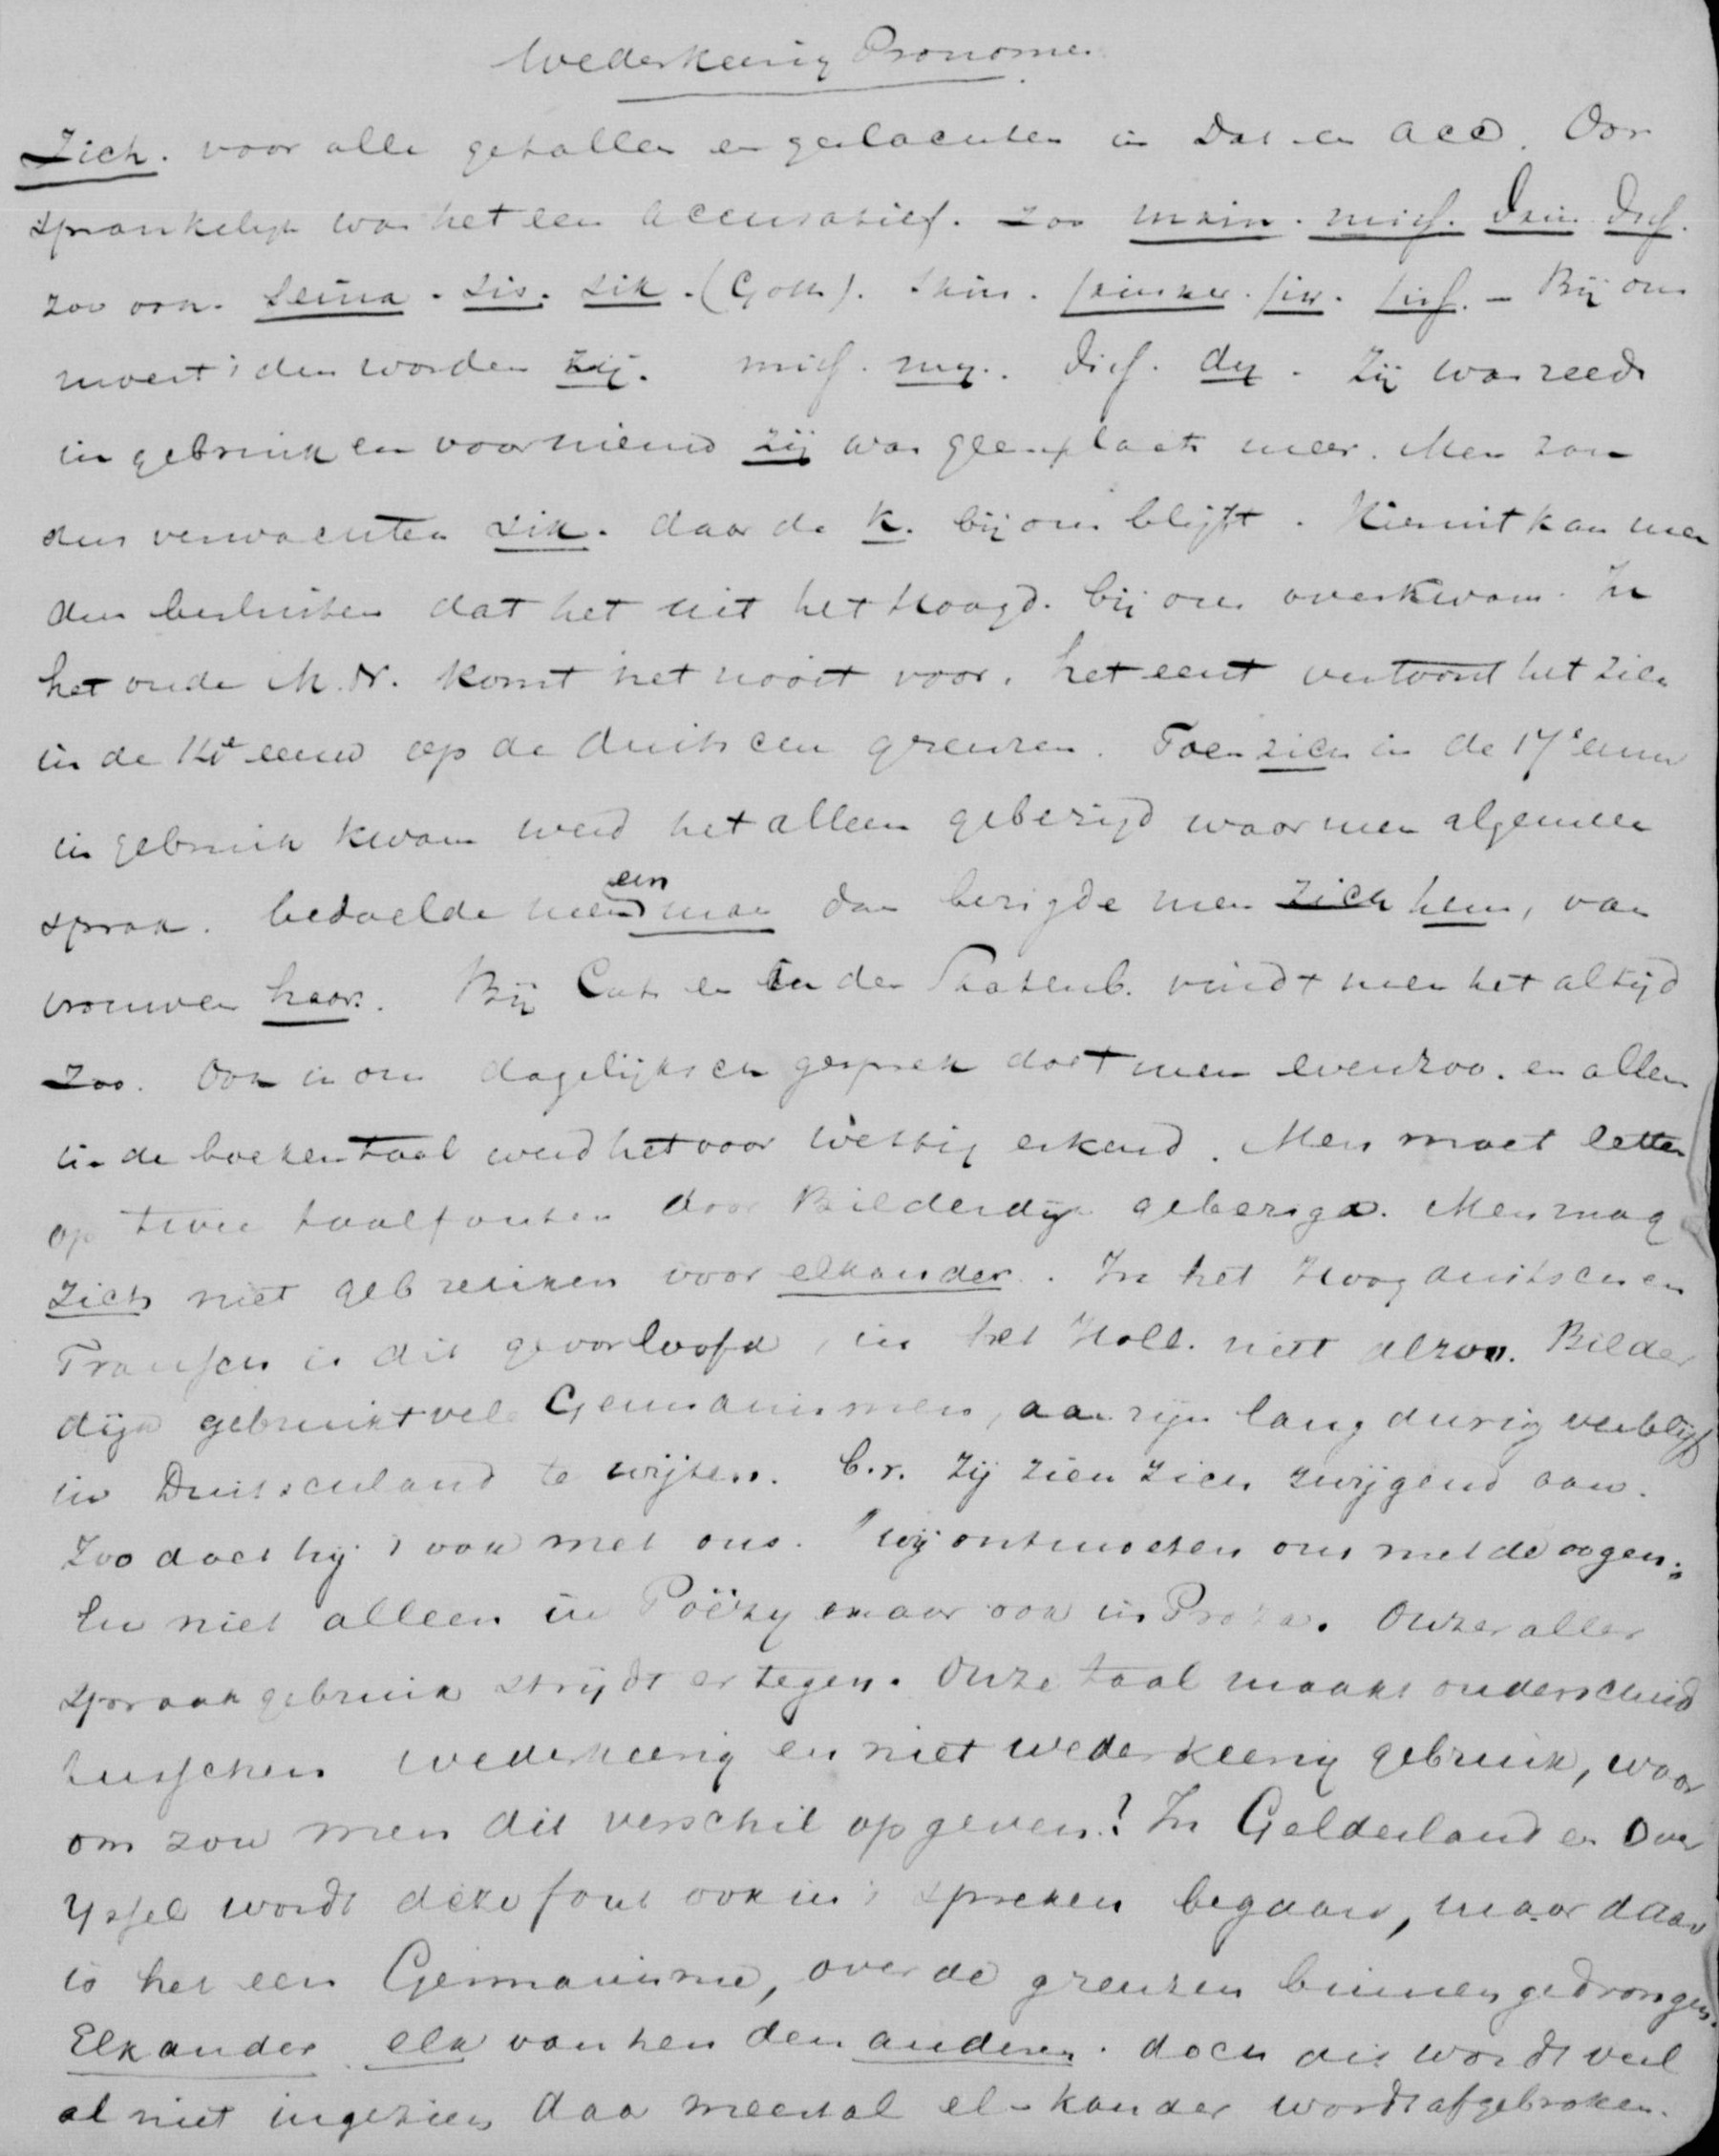 Wederkeerig Pronomen.
Zich. voor alle getallen en geslachten in Dat en Acc. Oor
spronkelijk was het een Accusatief. zoo mein. mich. dein dich.
zoo ook. seina. sis. sik. (Goth). seiner. sir. sich. – Bij ons
moest 't den worden zij. mich. my. dich. dy. Zij was reeds
in gebruik en voor nieuw zij was geen plaats meer. Men zou
dus verwachten zik. daar de k. bij ons blijft. Hieruit kan men
dus besluiten dat het uit het Hoogd. bij ons overkwam. In
het oude M.N. komt het nooit voor. het eerst vertoont het zich
in de eeuw op de duitschen grenzen. Toen zich in de 17e eeuw
in gebruik kwam werd het alleen gebezigd waar men algemeen
sprak. bedoelde men een man dan bezigde men zich hem, van
vrouwen haar. Bij Cats en in den Statenb. vindt men het altijd
zoo. Ook in ons dagelijksch gesprek doet men evenzoo. en alleen
in de boekentaal werd het voor wettig erkend. Men moet letten
op twee taalfouten door Bilderdijk gebezigd. Men mag
zich niet gebruiken voor elkander. In het Hoogduitsch en
Fransch is dit geoorloofd, in het Holl. niet alzoo. Bilder
dijk gebruikt vele Germanismen, aan zijn langdurig verblijf
in Duitschland te wijten. b.v. zij zien zich zwijgend aan.
Zoo doet hij 't ook met ons. "wij ontmoeten ons met de oogen."
En niet alleen in Poëzy maar ook in Proza. Onzer aller
spraakgebruik strijdt er tegen. Onze taal maakt onderscheid
tusschen wederkeerig en niet wederkeerig gebruik, waar
om zou men dit verschil opgeven? In Gelderland en Over
Yssel wordt deze fout ook in 't spreken begaan, maar daar
is het een Germanisme, over de grenzen binnengedrongen.
Elkander elk van hen den anderen. doch dit wordt veel
al niet ingezien daar meestal el-kander wordt afgebroken.